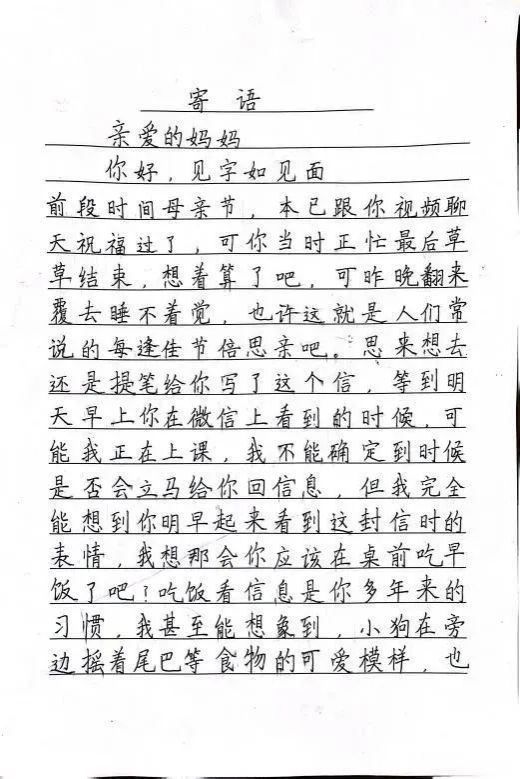 寄语
亲爱的妈妈
你好，见字如见面
前段时间母亲节，本已跟你视频聊
天祝福过了，可你当时正忙最后草
草结束，想着算了吧，可昨晚翻来
覆去睡不着觉，也许这就是人们常
说的每逢佳节倍思亲吧。思来想去
还是提笔给你写了这个信，等到明
天早上你在微信上看到的时候，可
能我正在上课，我不能确定到时候
是否会立马给你回信息，但我完全
能想到你明早起来看到这封信时的
表情，我想那会你应该在桌前吃早
饭了吧！吃饭看信息是你多年来的
习惯，我甚至能想象到，小狗在旁
边摇着尾巴等食物的可爱模样，也